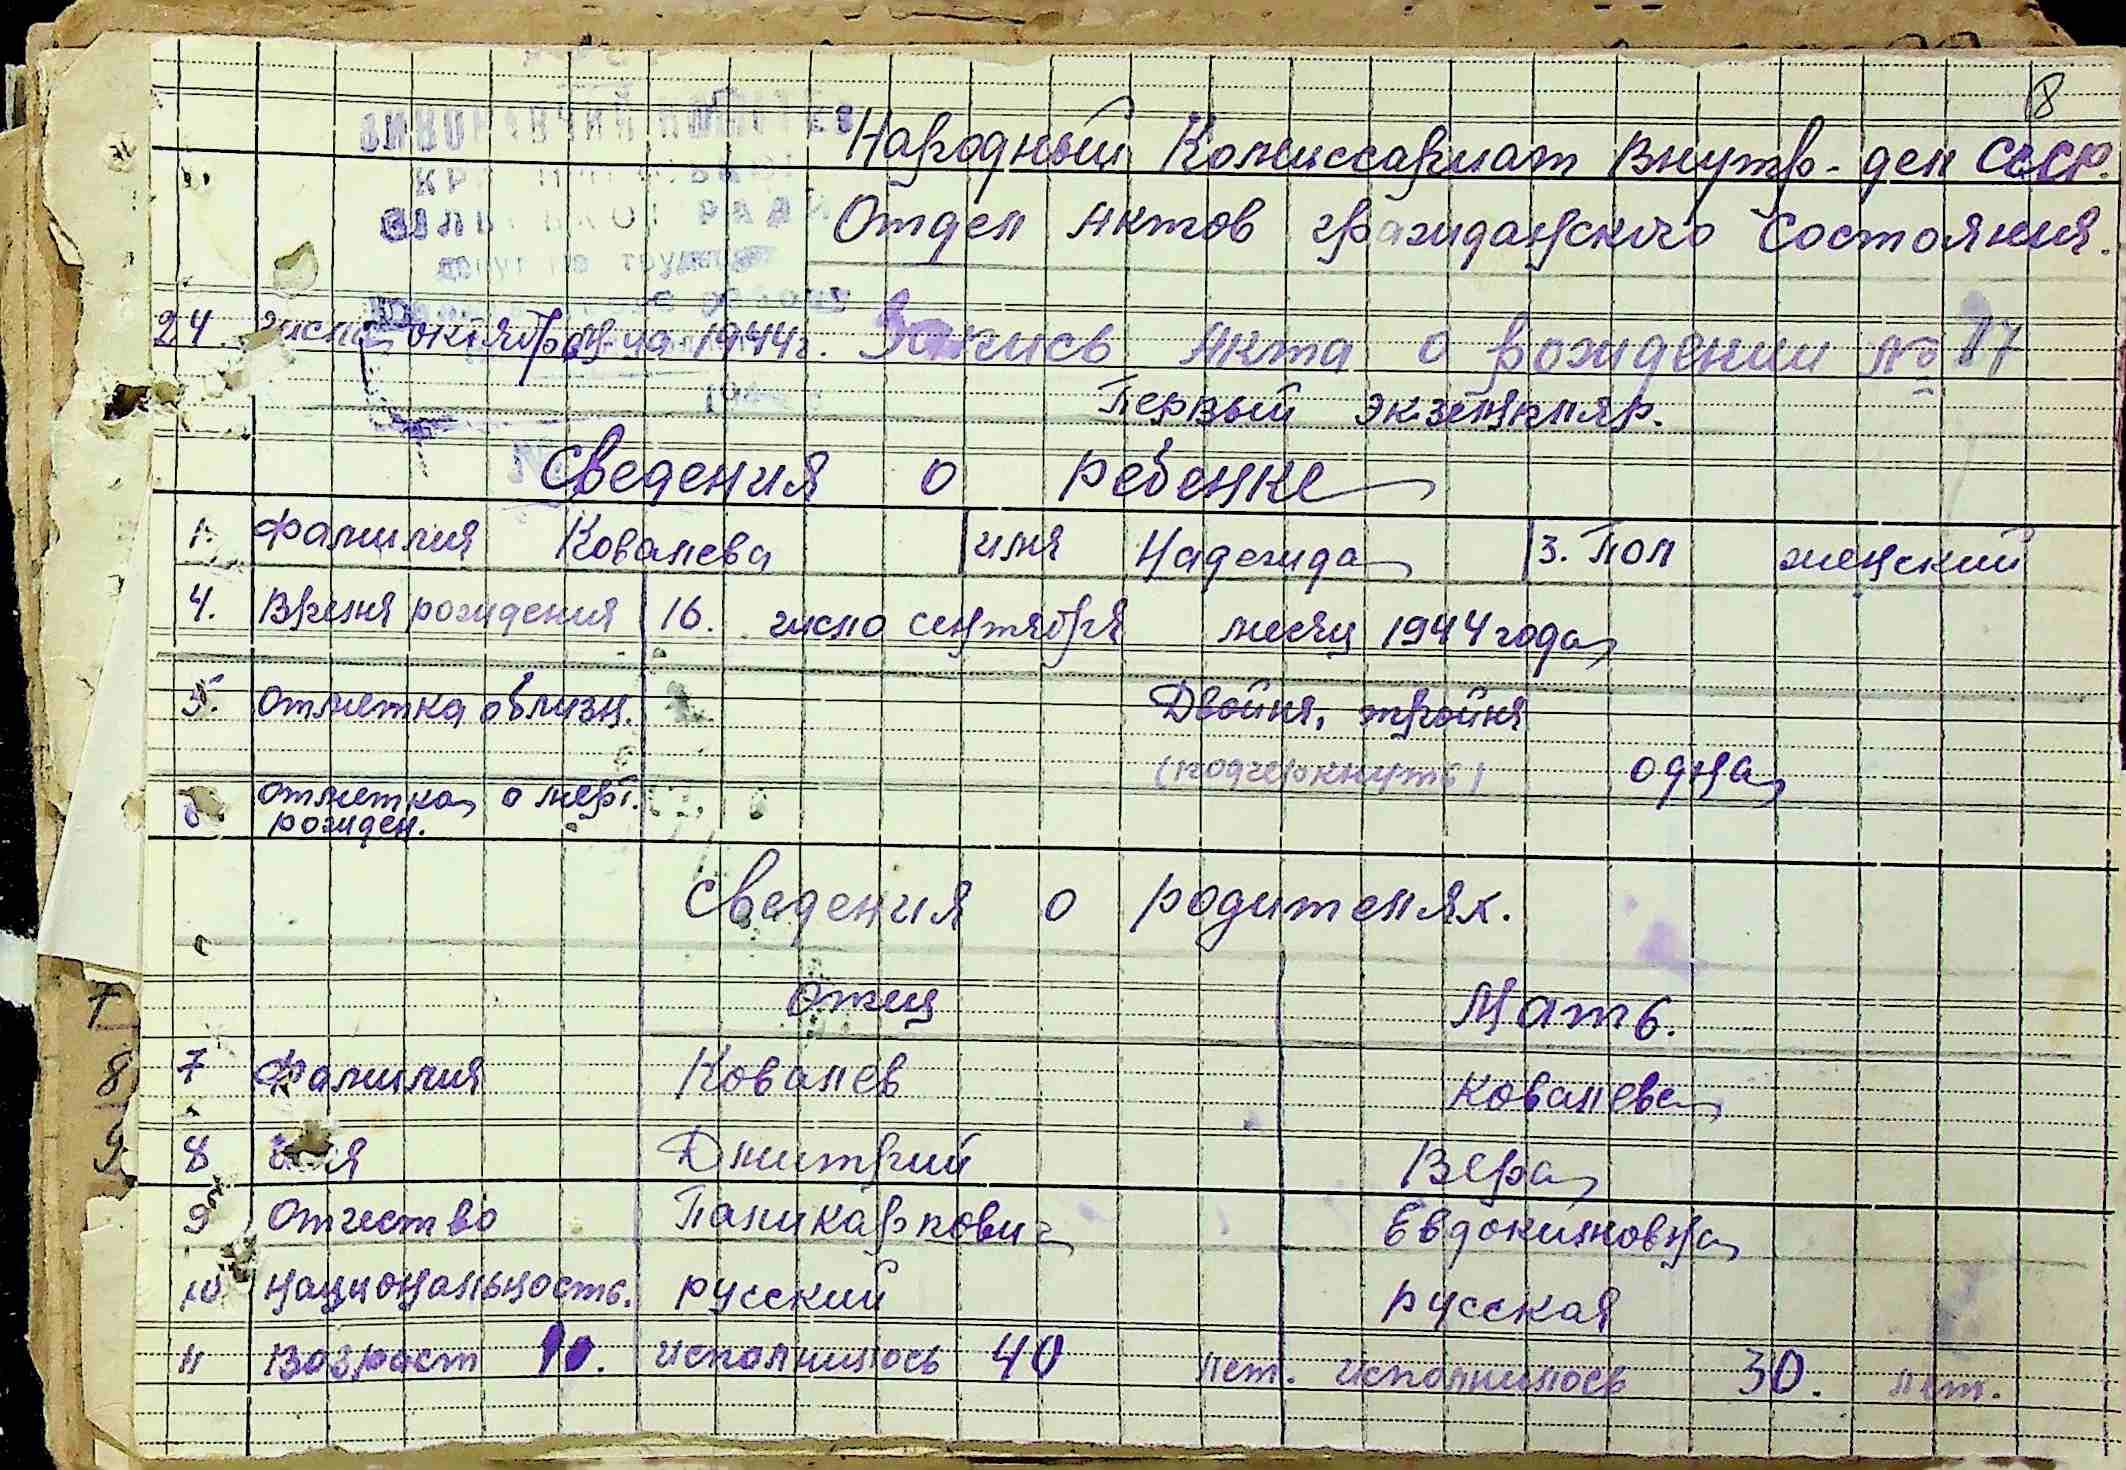 8
Народный Комиссариат Внутр-дел СССР.
Отдел Актов гражданского Состояния.
24. числа октября-ца 1944г. Запись Акта о рождении № 17
Первый экземпляр.
Сведения о ребенке
1. Фамилия Ковалева имя Надежда 3. Пол женский
4. Время рождения 16. число сентября месяц 1944 года
5. Отметка о близн. Двойня, тройня
(подчеркнуть) одна
6 отметка о мерт.
рожден.
Сведения о родителях.
Отец Мать.
7 Фамилия Ковалев Ковалева
8 имя Дмитрий Вера
9 Отчество Паликарпович Евдокимовна
10 национальность. русский русская
11 Возраст исполнилось 40 лет. исполнилось 30. лет.
7
8
9